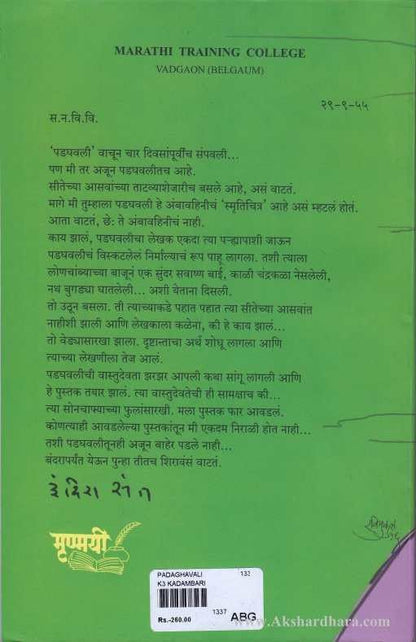 MARATHI TRAINING COLLEGE
VADGAON (BELGAUM)
२९-९-५५
स.न.वि.वि.
'पडघवली' वाचून चार दिवसांपूर्वीच संपवली...
पण मी तर अजून पडघवलीतच आहे.
सीतेच्या आसवांच्या ताटव्याशेजारीच बसले आहे, असं वाटतं.
मागे मी तुम्हाला पडघवली हे अंबावहिनीचं 'स्मृतिचित्र' आहे असं म्हटलं होतं.
आता वाटतं, छे: ते अंबावहिनीचं नाही.
काय झालं, पडघवलीचा लेखक एकदा त्या पऱ्ह्यापाशी जाऊन
पडघवलीचं विस्कटलेलं निर्माल्याचं रूप पाहू लागला. तशी त्याला
लोणचांब्याच्या बाजूनं एक सुंदर सवाष्ण बाई, काळी चंद्रकळा नेसलेली,
नथ बुगड्या घातलेली... अशी येताना दिसली.
तो उठून बसला. ती त्याच्याकडे पहात पहात त्या सीतेच्या आसवांत
नाहीशी झाली आणि लेखकाला कळेना, की हे काय झालं...
तो वेड्यासारखा झाला. दृष्टान्ताचा अर्थ शोधू लागला आणि
त्याच्या लेखणीला तेज आलं.
पडघवलीची वास्तुदेवता झरझर आपली कथा सांगू लागली आणि
हे पुस्तक तयार झालं. त्या वास्तुदेवतेची ही सामक्षाच की...
त्या सोनचाफ्याच्या फुलांसारखी. मला पुस्तक फार आवडलं.
कोणत्याही आवडलेल्या पुस्तकांतून मी एकदम निराळी होत नाही...
तशी पडघवलीतूनही अजून बाहेर पडले नाही...
बंदरापर्यंत येऊन पुन्हा तीतच शिरावंसं वाटतं.
इंदिरा संत
मृण्मयी
PADAGHAVALI 133
K3 KADAMBARI
Rs.-260.00 1337 ABG
www.Akshardhara.com